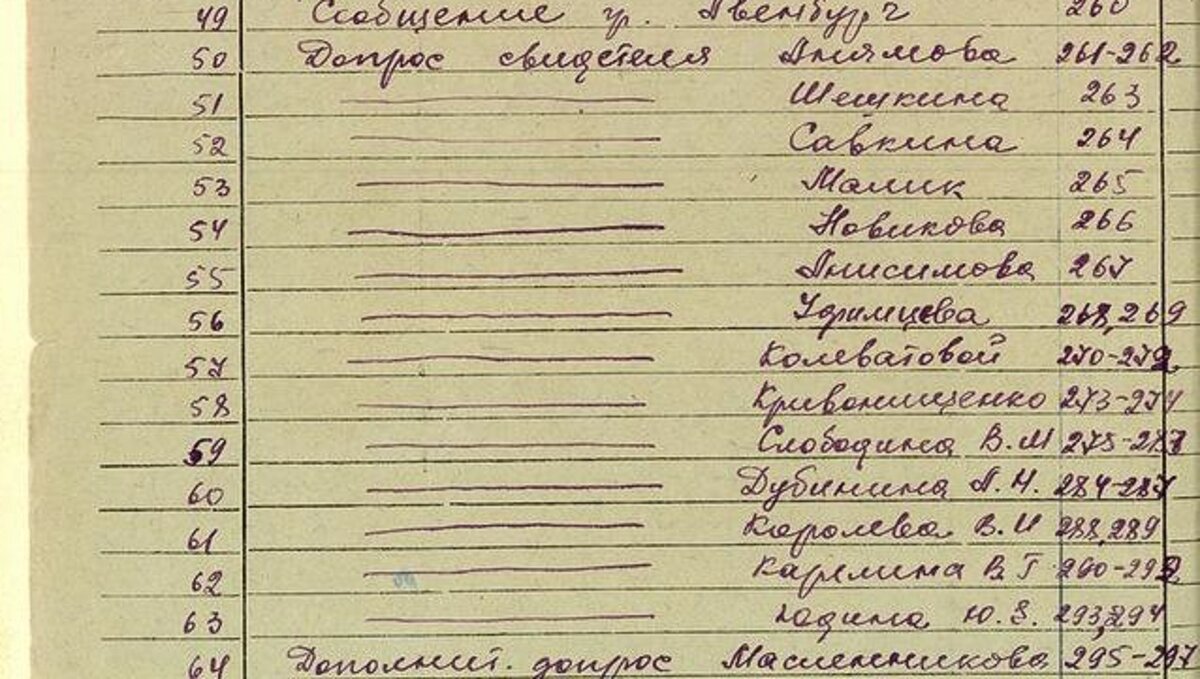 49 Сообщение гр. 260
50 Допрос свидетеля Анямова 261-262
51 Шешкина 263
52 Савкина 264
53 Малик 265
54 Новикова 266
55 Анисимова 267
56 Уфимцева 268, 269
57 Колеватовой 270-272
58 Кривонищенко 273-274
59 Слободина В. М 275-
60 Дубинина А. Н. 284-287
61 Королева В. И 288, 289
62 Карелина В Г 290-292
63 Юдина Ю. Е. 293, 294
64 Дополнит. допрос Масленникова 295-297